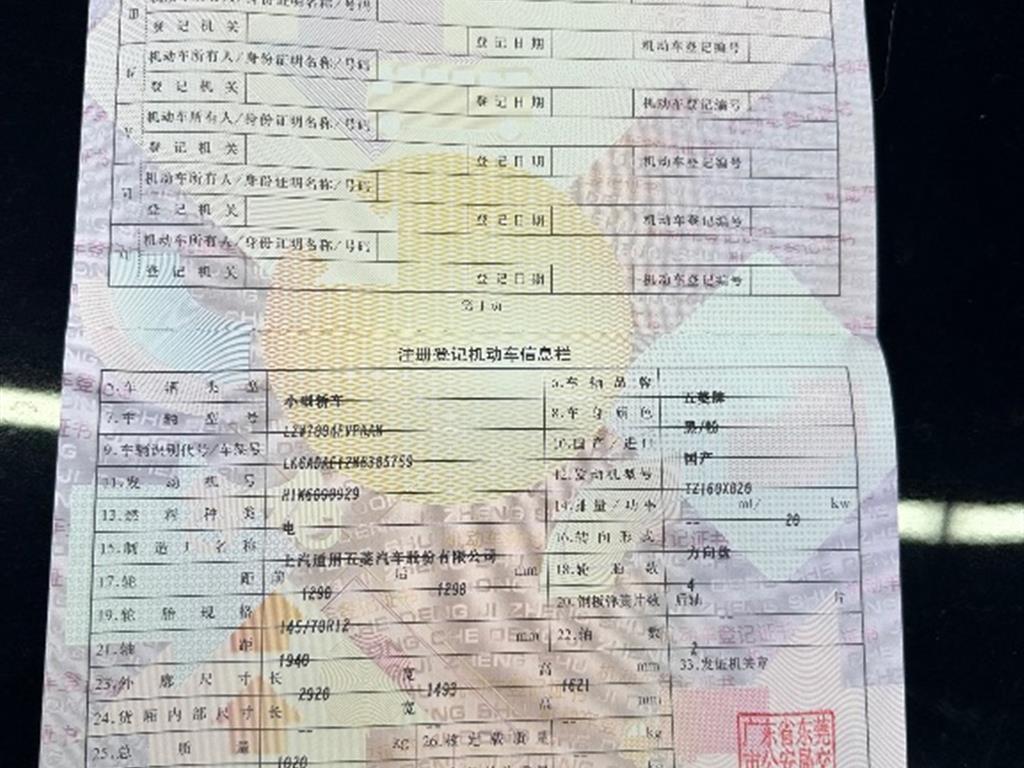 机动车所有人/身份证明名称/号码
登记机关 登记日期 机动车登记编号
机动车所有人/身份证明名称/号码
登记机关 登记日期 机动车登记编号
机动车所有人/身份证明名称/号码
登记机关 登记日期 机动车登记编号
机动车所有人/身份证明名称/号码
登记机关 登记日期 机动车登记编号
机动车所有人/身份证明名称/号码
登记机关 登记日期 机动车登记编号
第1页
注册登记机动车信息栏
5.车辆类型 小型轿车 6.车辆品牌 五菱牌
7.车辆型号 8.车身颜色 黑/粉
9.车辆识别代号/车架号 10.国产/进口 国产
11.发动机号 12.发动机型号 TZ160X020
13.燃料种类 电 14.排量/功率 -- ml/ 20 kw
15.制造厂名称 上汽通用五菱汽车股份有限公司 16.转向形式 方向盘
17.轮距 前 1290 后 1290 mm 18.轮胎数 4
19.轮胎规格 145/70R12 20.钢板弹簧片数 后轴 -- 片
21.轴距 1940 mm 22.轴数 2
23.外廓尺寸 长 2920 宽 1493 高 1621 mm 33.发证机关章
24.货厢内部尺寸 长 -- 宽 -- 高 -- mm
25.总质量 1020 kg 26.核定载质量 -- kg
广东省东莞
市公安局交